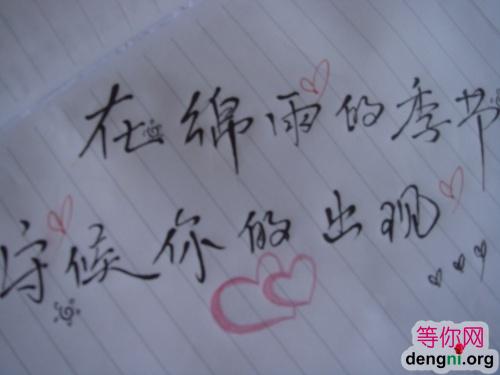 在绵雨的季节
守候你的出现
等你网
dengni.org